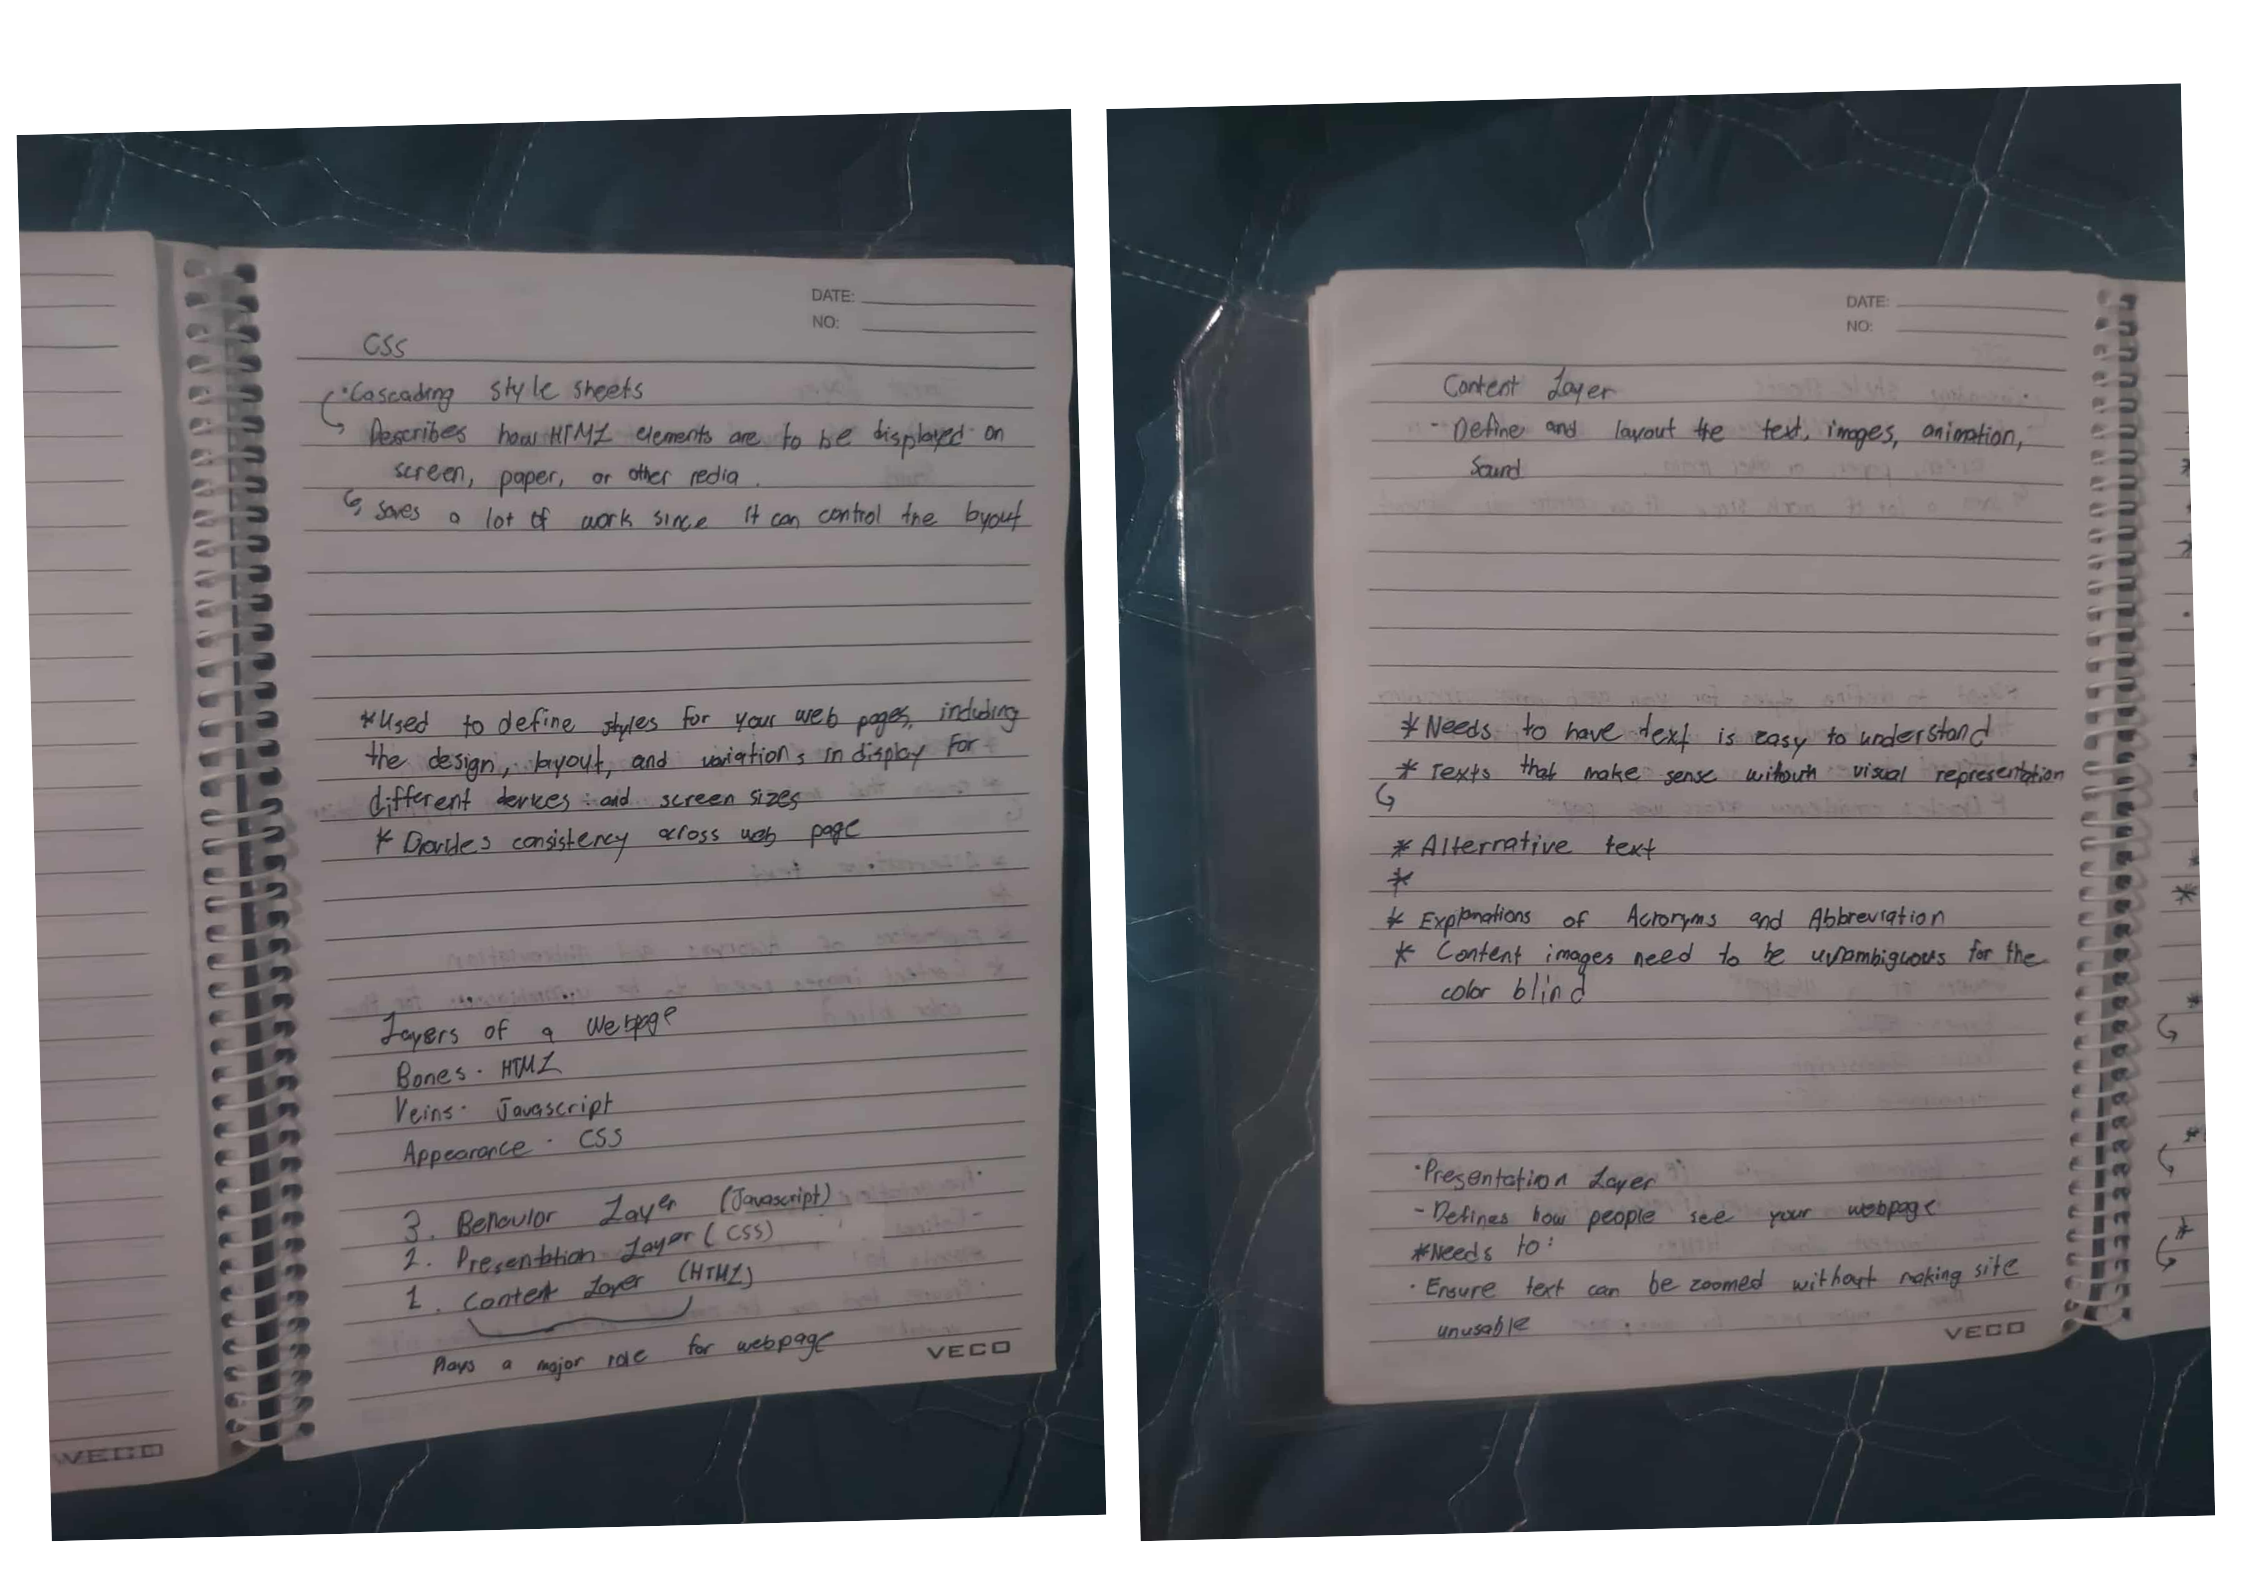 DATE:
NO:
CSS
·Cascading style sheets
↳ Describes how HTML elements are to be displayed on
screen, paper, or other redia.
↳ saves a lot of work since it can control the layout
*Used to define styles for your web pages, including
the design, layout, and variations in display for
different devices and screen sizes
* Provides consistency across web page
Layers of a Webpage
Bones · HTML
Veins · Javascript
Appearance · CSS
3. Behavior Layer (Javascript)
2. Presentation Layer (CSS)
1. Content Layer (HTML)
Plays a major role for webpage
VECO
VECO
DATE:
NO:
Content Layer
- Define and layout the text, images, animation,
Sound
*Needs to have text is easy to understand
* Texts that make sense without visual representation
↳
* Alternative text
*
* Explanations of Acronyms and Abbreviation
* Content images need to be unambiguous for the
color blind
·Presentation Layer
- Defines how people see your webpage
*Needs to:
· Ensure text can be zoomed without making site
unusable
VECO